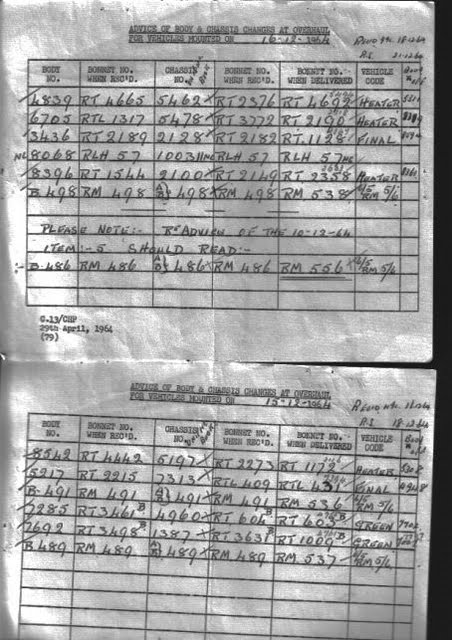 ADVICE OF BODY & CHASSIS CHANGES AT OVERHAUL
FOR VEHICLES MOUNTED ON 16-12-1964
18-12-64
21-12-64
BODY NO. BONNET NO. WHEN REC'D. CHASSIS NO. BONNET NO. WHEN DELIVERED VEHICLE CODE
4839 RT 4665 5462 RT 2376 RT 4692 HEATER
6705 RTL 1317 5478 RT 3772 RT 2190 HEATER
3436 RT 2189 2128 RT 2182 RT 1128 FINAL
8068 RLH 57 RLH 57 RLH 57
8396 RT 1544 2100 RT 2149 RT 2358 HEATER
B.498 RM 498 498 RM 498 RM 538 RM 5/6
PLEASE NOTE:- ADVICE OF THE 10-12-64
ITEM:- 5 SHOULD READ:-
B.486 RM 486 486 RM 486 RM 556 RM 5/6
C.13/CHP
29th April, 1964
(79)
ADVICE OF BODY & CHASSIS CHANGES AT OVERHAUL
FOR VEHICLES MOUNTED ON 15-12-1964
18-12-64
BODY NO. BONNET NO. WHEN REC'D. CHASSIS NO. BONNET NO. WHEN REC'D. BONNET NO. WHEN DELIVERED VEHICLE CODE
8542 RT 4442 5197 RT 2273 RT 1172 HEATER
5217 RT 2215 7313 RTL 409 RTL 431 FINAL
B.491 RM 491 491 RM 491 RM 536 RM 5/6
7285 RT 3461 4960 RT 604 RT 603 GREEN
7692 RT 3498 1387 RT 3631 RT 1009 GREEN
B.489 RM 489 489 RM 489 RM 537 RM 5/6